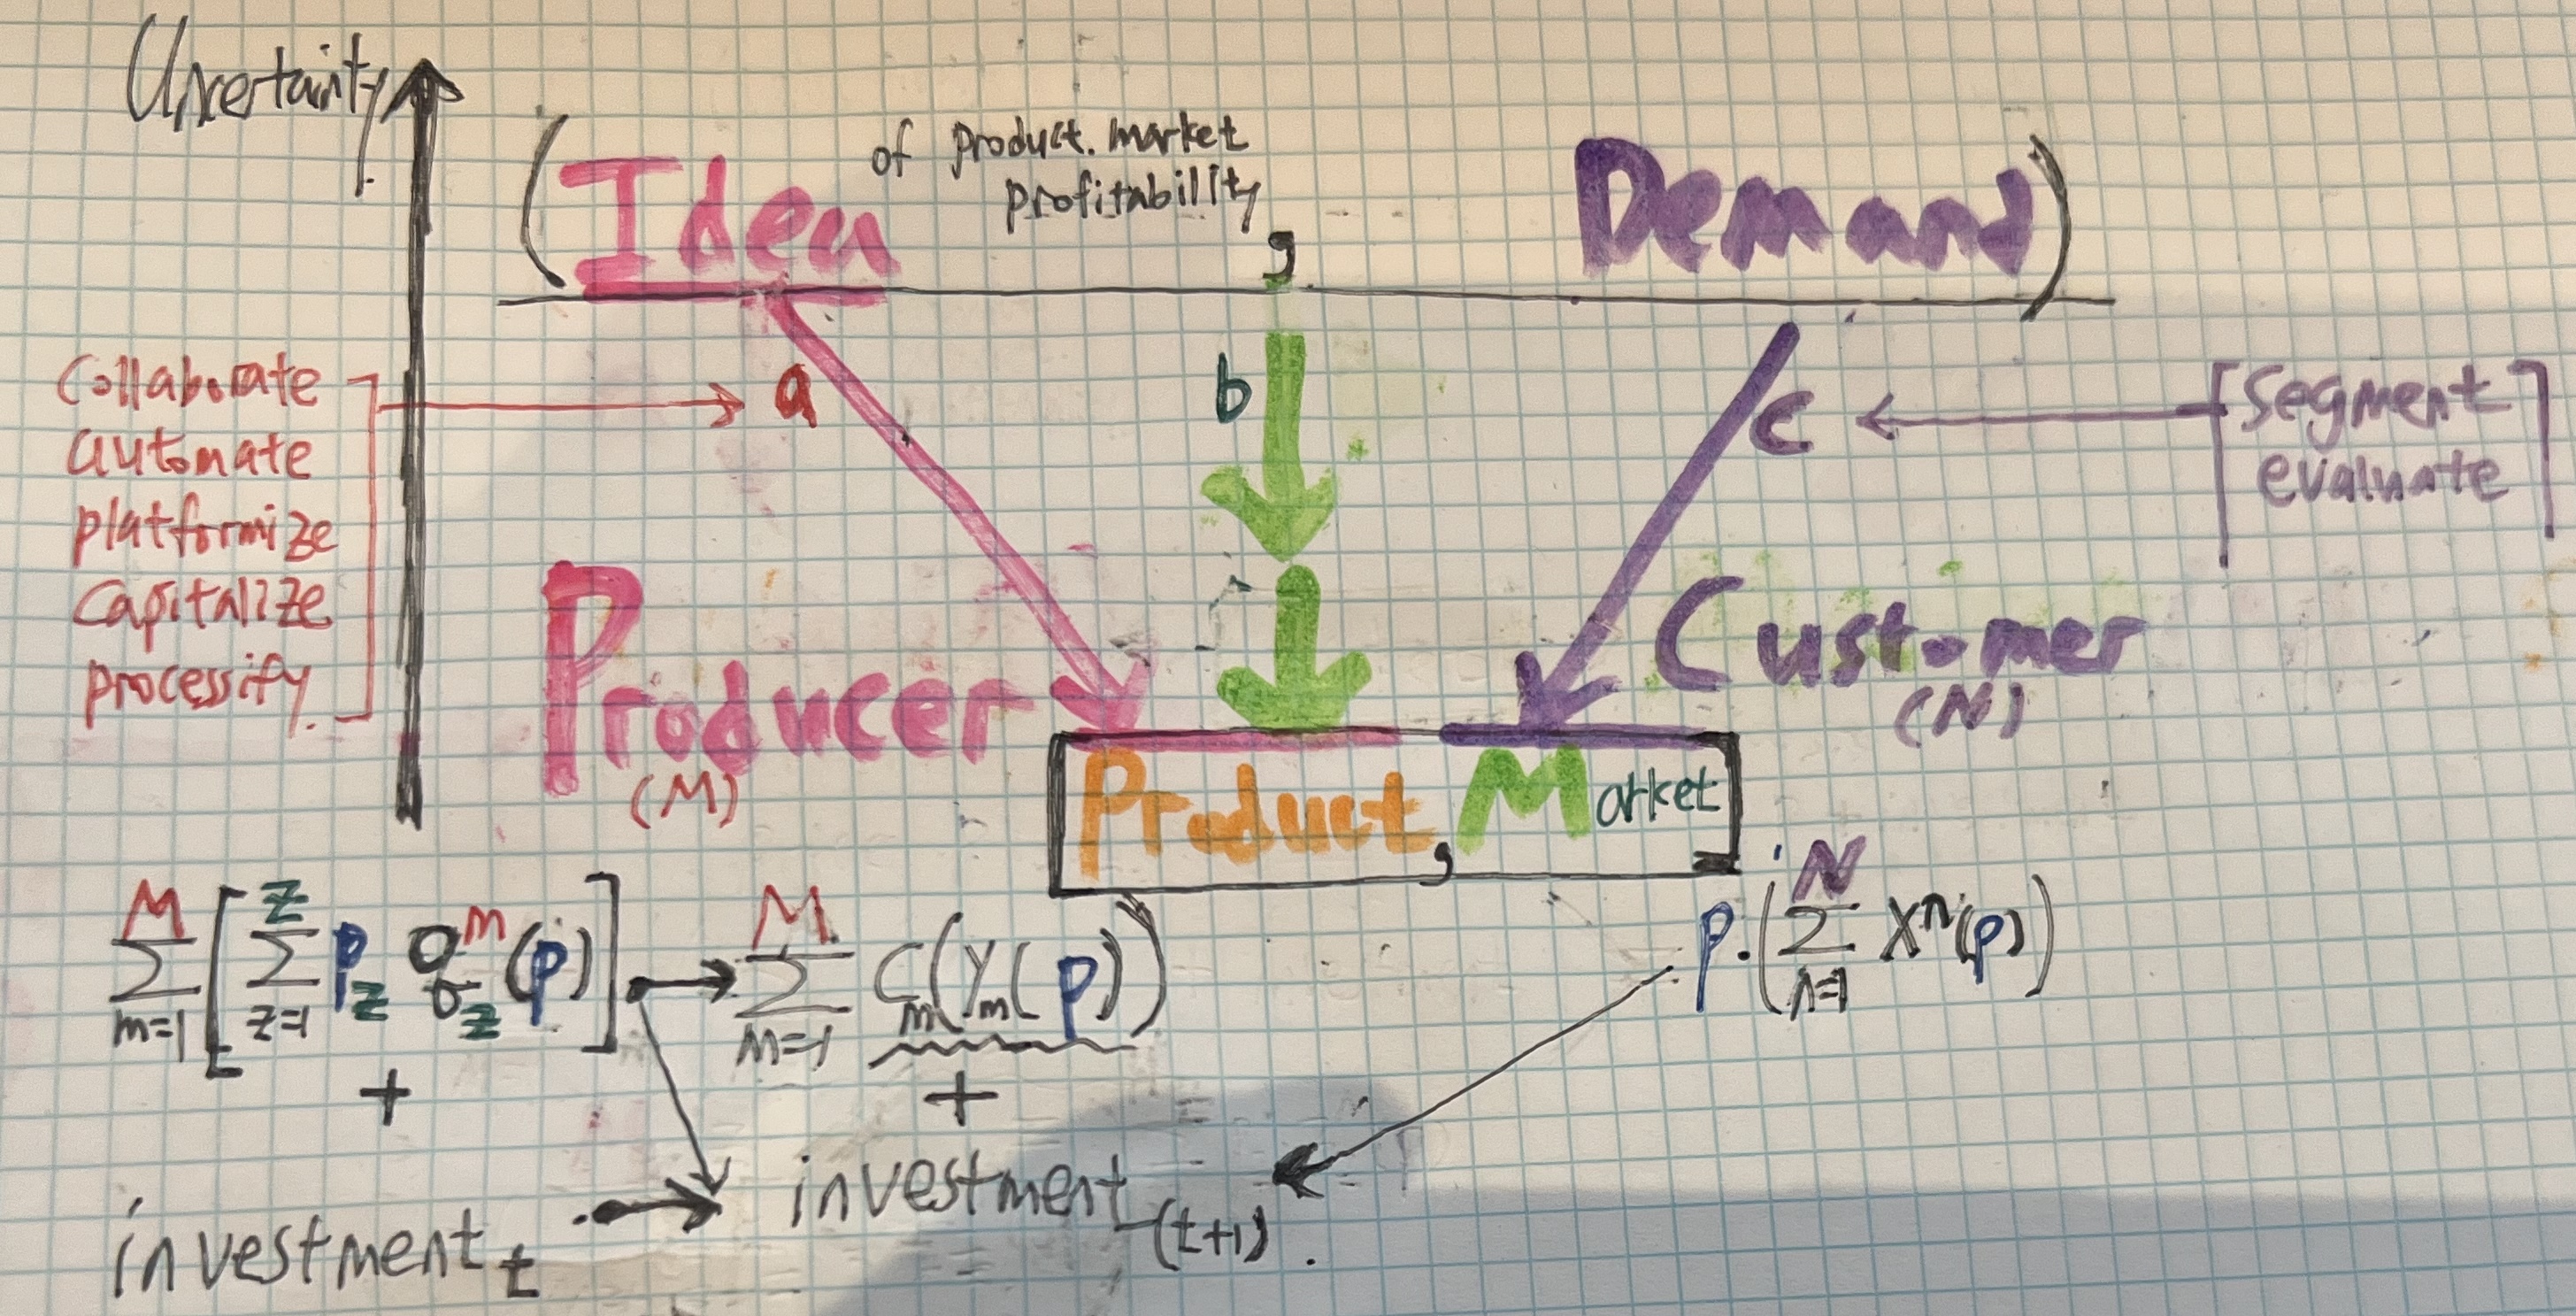 Uncertainty
(Idea of product.market profitability, Demand)
a
b
c
Collaborate
automate
platformize
Capitalize
processify.
[segment
evaluate]
Producer
(M)
Customer
(N)
Product, Market
M Σ m=1 [ Z Σ z=1 p_z q^m_z (p) ] → M Σ m=1 C_m(y_m(p))
p·( N Σ n=1 x^n(p) )
+ +
investment_t → investment_(t+1).